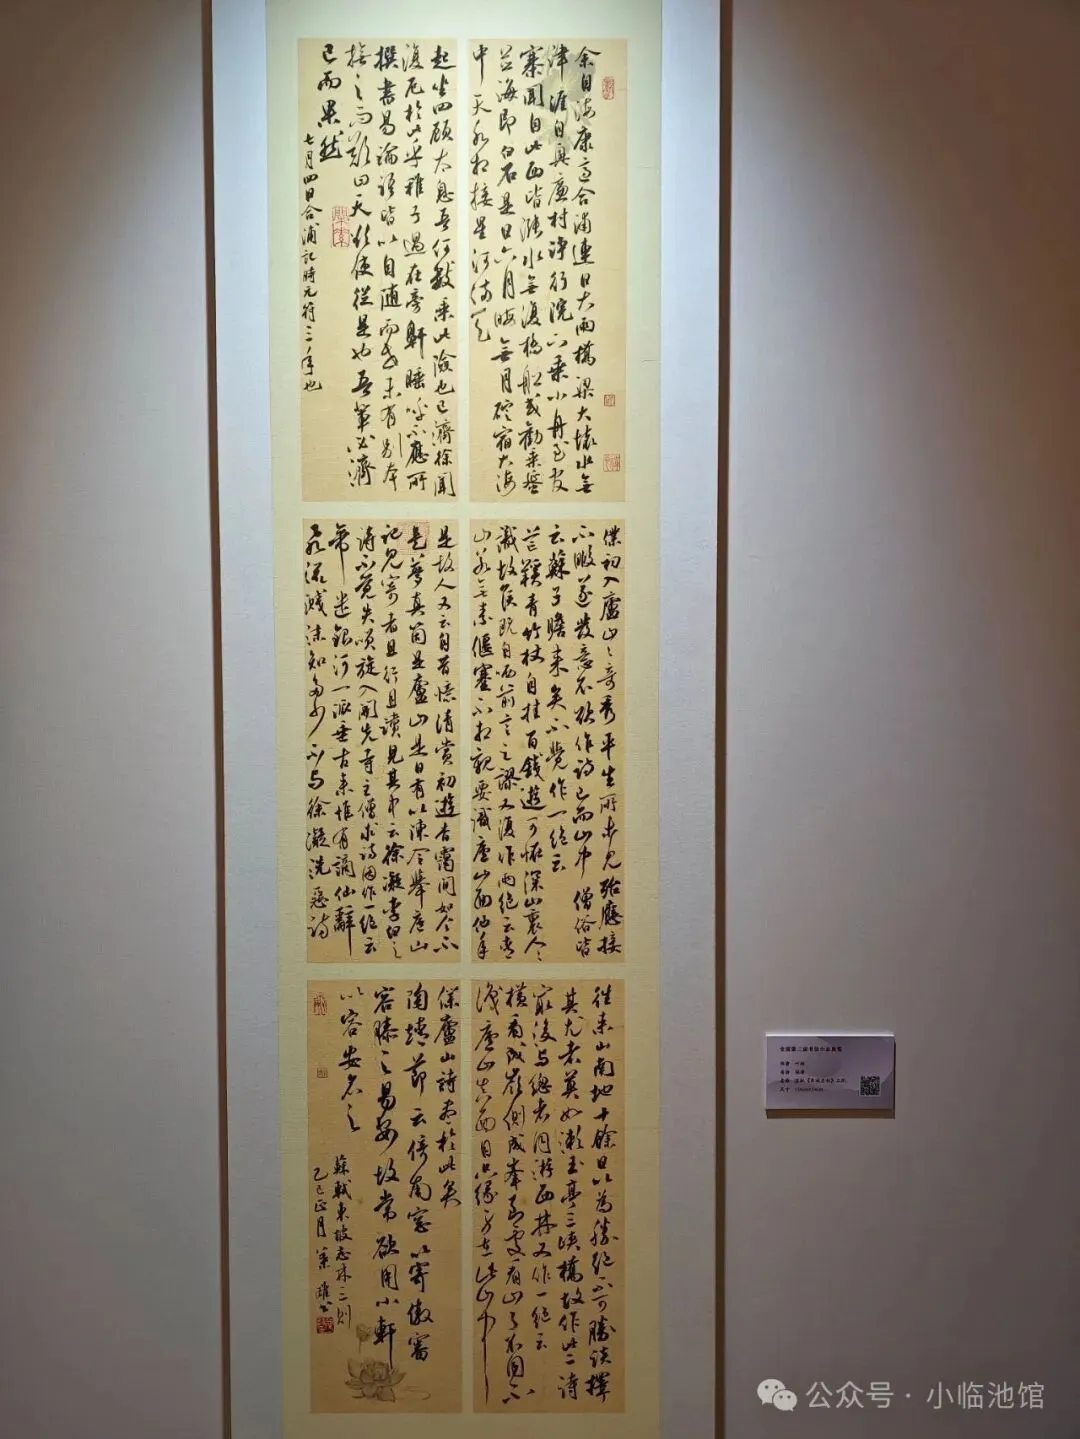 余自海康適合浦連日大雨橋梁大壞水無
津涯自興廉村淨行院下乘小舟至官
寨聞自此西皆漲水無復橋船或勸乘蜑
並海即白石是日六月晦無月碇宿大海
中天水相接星河滿天
起坐四顧太息吾何數乘此險也已濟徐聞
復厄於此乎稚子過在旁鼾睡呼不應所
撰書易論語皆以自隨而世未有別本
撫之而歎曰天使從是也吾輩必濟
已而果然
七月四日合浦記時元符三年也
僕初入廬山々奇秀平生所未見殆應接
不暇遂發意不欲作詩已而山中僧俗皆
云蘇子瞻來矣不覺作一絕云
芒鞵青竹杖自挂百錢遊可怪深山裏人々
識故侯既自哂前言之謬又復作兩絕云青
山若無素偃蹇不相親要識廬山面他年
是故人又云自昔憶清賞初遊杳靄間如今不
是夢真箇是廬山是日有以陳令舉廬山
記見寄者且行且讀見其中云徐凝李白之
詩不覺失笑旋入開先寺主僧求詩因作一絕云
帝遣銀河一派垂古來惟有謫仙辭
飛流濺沫知多少不與徐凝洗惡詩
往來山南地十餘日以為勝絕不可勝談擇
其尤者莫如漱玉亭三峽橋故作此二詩
最後與總老同游西林又作一絕云
橫看成嶺側成峯到處看山了不同不
識廬山真面目只緣身在此山中
僕廬山詩盡於此矣
陶靖節云倚南窗以寄傲審
容膝之易安故常欲用小軒
以容安名之
蘇軾東坡志林三則
乙巳正月
公众号 · 小临池馆